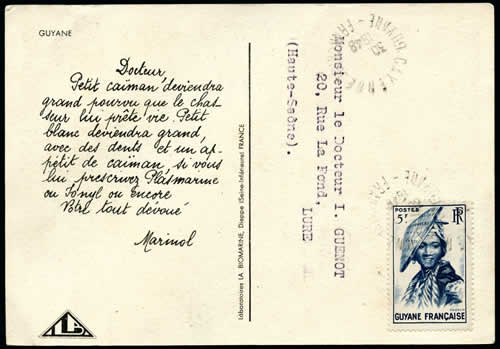 GUYANE
Docteur,
Petit caïman deviendra
grand pourvu que le chas-
seur lui prête vie. Petit
blanc deviendra grand,
avec des dents et un ap-
pétit de caïman, si vous
lui prescrivez Plasmarine
ou Ionyl ou Encore
Votre tout dévoué
Marinol
Laboratoires LA BIOMARINE, Dieppe (Seine-Inférieure) FRANCE
Monsieur le Docteur I. GUENOT
20, Rue La Fond,
LURE
(Haute-Saône).
CAYENNE
GUYANE-FR
POSTES
5F
RF
GUYANE FRANÇAISE